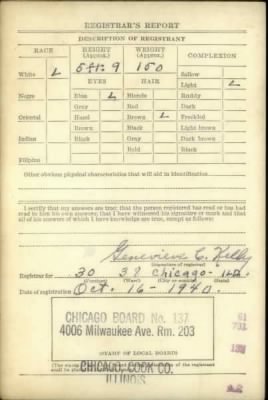 REGISTRAR'S REPORT
DESCRIPTION OF REGISTRANT
RACE HEIGHT (Approx.) WEIGHT (Approx.) COMPLEXION
White L 5ft. 9 150 Sallow
EYES HAIR Light L
Negro Blue L Blonde Ruddy
Gray Red Dark
Oriental Hazel Brown L Freckled
Brown Black Light brown
Indian Black Gray Dark brown
Bald Black
Filipino
Other obvious physical characteristics that will aid in identification
I certify that my answers are true; that the person registered has read or has had
read to him his own answers; that I have witnessed his signature or mark and that
all of his answers of which I have knowledge are true, except as follows:
Genevieve C. Kelly
(Signature of registrar)
Registrar for 30 38 Chicago - Ill.
(Precinct) (Ward) (City or county) (State)
Date of registration Oct. 16 - 1940.
CHICAGO BOARD No. 137
4006 Milwaukee Ave. Rm. 203
STAMP OF LOCAL BOARD
CHICAGO, COOK CO.
ILLINOIS